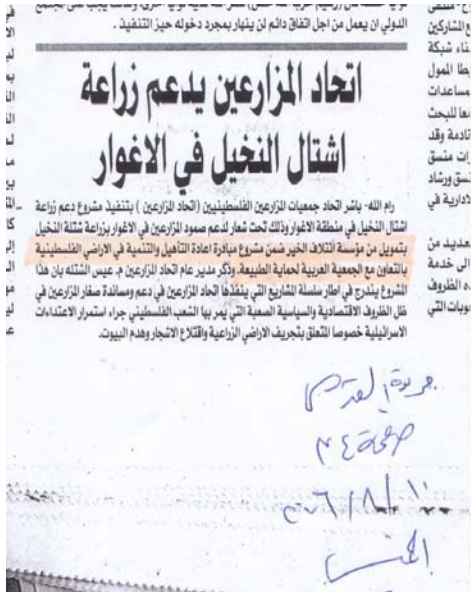 الدولي ان يعمل من اجل اتفاق دائم لن ينهار بمجرد دخوله حيز التنفيذ .
اتحاد المزارعين يدعم زراعة
اشتال النخيل في الاغوار
رام الله- باشر اتحاد جمعيات المزارعين الفلسطينيين (اتحاد المزارعين ) بتنفيذ مشروع دعم زراعة
اشتال النخيل في منطقة الاغوار وذلك تحت شعار لدعم صمود المزارعين في الاغوار بزراعة شتلة النخيل
بتمويل من مؤسسة ائتلاف الخير ضمن مشروع مبادرة اعادة التأهيل والتنمية في الاراضي الفلسطينية
بالتعاون مع الجمعية العربية لحماية الطبيعة. وذكر مدير عام اتحاد المزارعين م. عيس الشتله بان هذا
المشروع يندرج في اطار سلسلة المشاريع التي ينفذها اتحاد المزارعين في دعم ومساندة صغار المزارعين في
ظل الظروف الاقتصادية والسياسية الصعبة التي يمر بها الشعب الفلسطيني جراء استمرار الاعتداءات
الاسرائيلية خصوصا المتعلق بتجريف الاراضي الزراعية واقتلاع الاشجار وهدم البيوت.
المشاركين
شبكة
المول
مساعدات
للبحث
وقد
منسق
ورشاد
في
من
الى خدمة
الظروف
التي
جريدة القدس
صفحة
١٠/٨/٢٠٠٦
الخميس